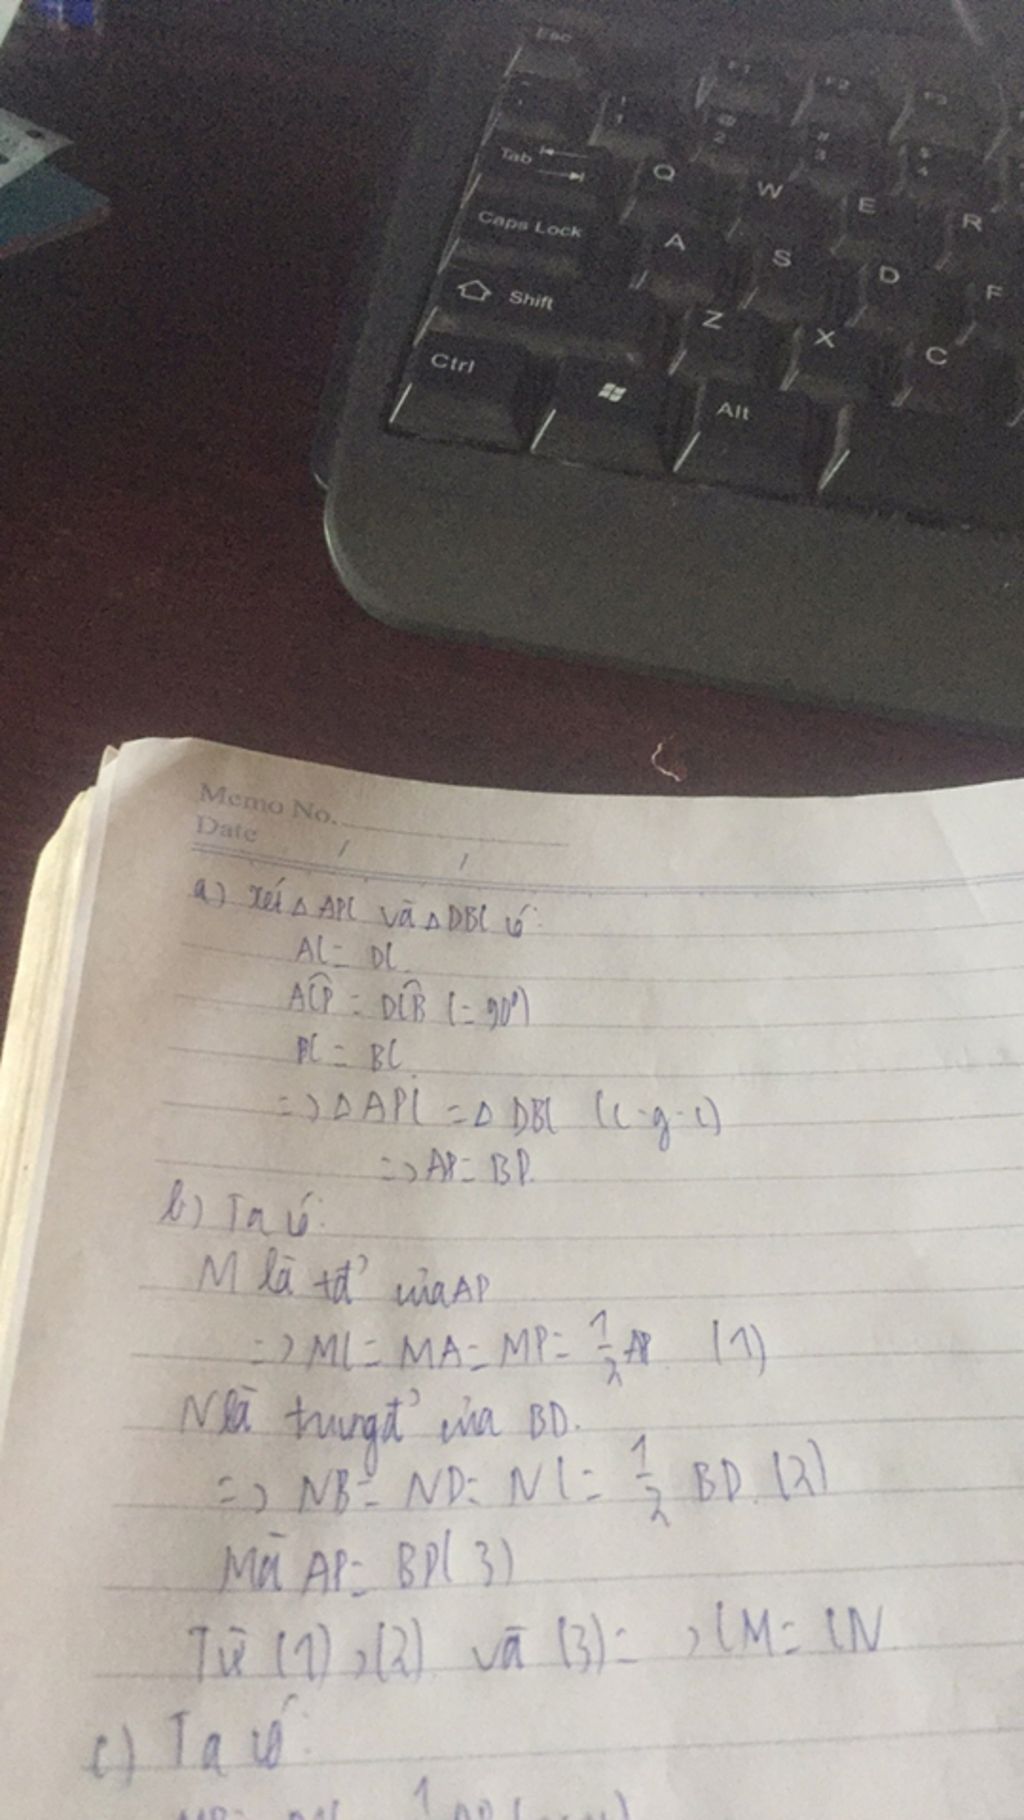 Esc
F1 F2 F3
! 1 @ 2 # 3 $ 4
Tab Q W E R
Caps Lock A S D F
Shift Z X C
Ctrl Alt
Memo No.
Date / /
a) xét △ APC và △ DBC có:
AC = DC
ACP = DCB (= 90°)
PC = BC
=> △ APC = △ DBC (c-g-c)
=> AP = BD.
b) Ta có:
M là tđ' của AP
=> MC = MA = MP = 1/2 AP (1)
N là trung đ' của BD.
=> NB = ND = NC = 1/2 BD (2)
Mà AP = BD (3)
Từ (1), (2) và (3) => CM = CN
c) Ta có: